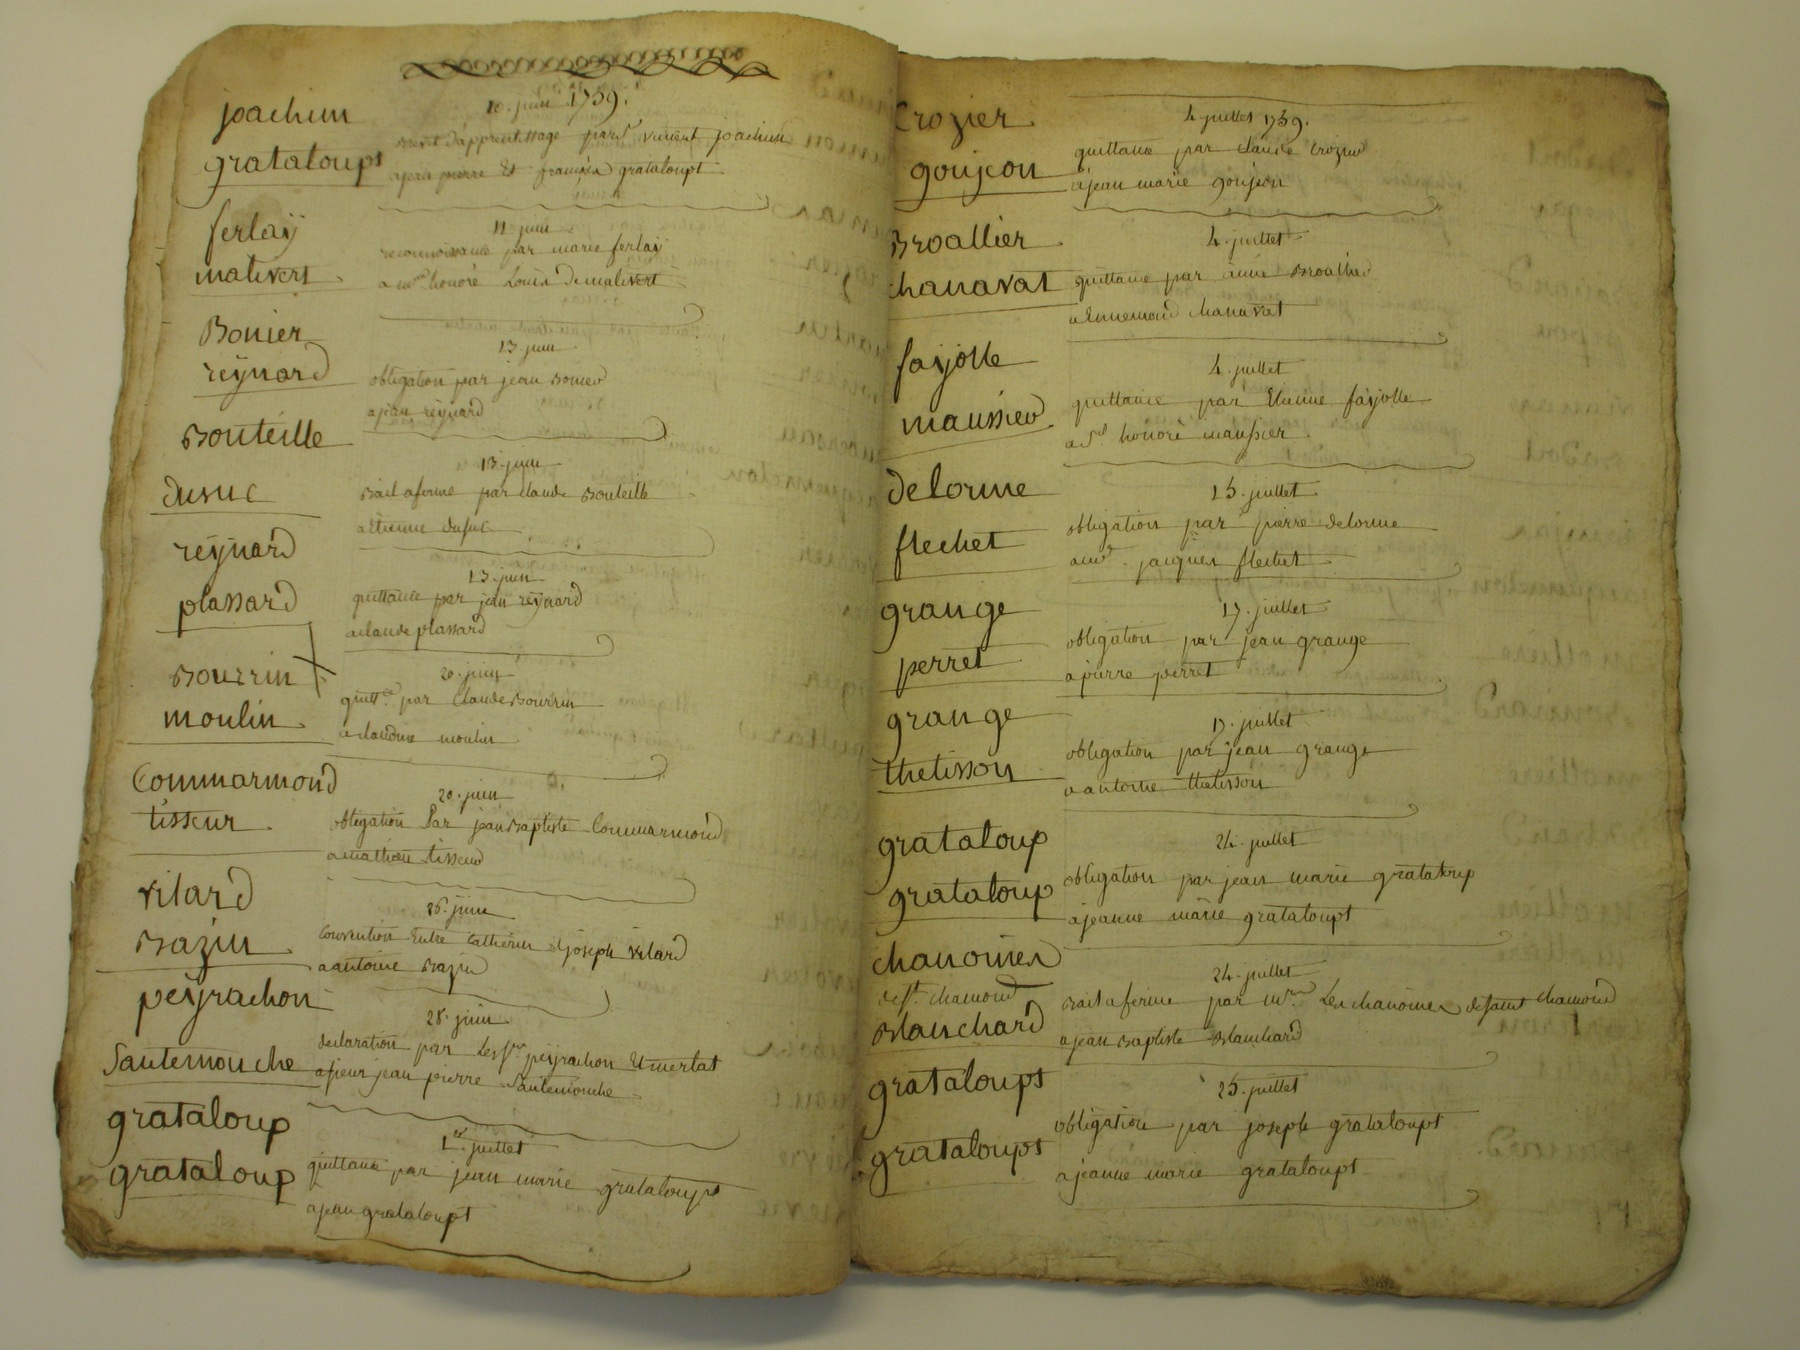 joachim
grataloups
10. juin 1759.
Brevet d'apprentissage par sr. vincent joachim
a jean pierre Et françois grataloupt
ferlaÿ
malivert
11 juin
reconnoissance par marie ferlaÿ
a mre. honoré Louis De malivert
Bonier
reÿnard
13. juin
obligation par jean Bonier
a jean reÿnard
Bouteille
dusuc
13. juin
Bail a ferme par claude Bouteille
a Etienne dusuc
reÿnard
plassard
13. juin
quittance par jean reÿnard
a claude plassard
Bourrin
moulin
20. juin
quittce. par Claude Bourrin
a claudine moulin
Commarmond
tisseur
20. juin
obligation Par jean Baptiste Commarmond
a mathieu tisseur
vilard
Bazin
26. juin
Convention Entre Catherin et joseph vilard
a antoine Bazin
peÿrachon
Santemouche
28. juin
declaration par Les srs peÿrachon Et merlat
a sieur jean pierre Santemouche
grataloup
grataloup
1er. juillet
quittance par jean marie grataloups
a jean grataloupt
Crozier
goujeon
4 juillet 1759.
quittance par claude Crozier
a jean marie goujeon
Broallier
chanavat
4. juillet
quittance par anne Broallier
a ennemond chanavat
faÿolle
maussier
4. juillet
quittance par Etienne faÿolle
a sr. honoré maussier
delorme
flechet
15. juillet
obligation par pierre delorme
a jacques flechet
grange
perret
17. juillet
obligation par jean grange
a pierre perret
grange
thelisson
17. juillet
obligation par jean grange
a antoine thelisson
grataloup
grataloup
24. juillet
obligation par jean marie grataloup
a jeanne marie grataloupt
chanoines
de st. chamond
Blanchard
24. juillet
Bail a ferme par mrs. Les chanoines de saint chamond
a jean Baptiste Blanchard
grataloups
grataloups
25. juillet
obligation par joseph grataloupt
a jeanne marie grataloupt